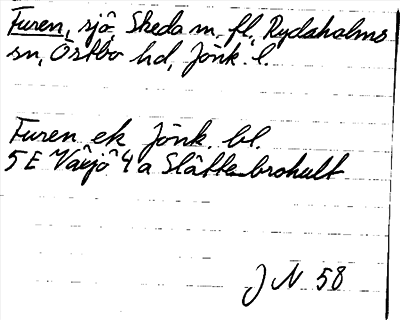 Furen, sjö, Skeda m. fl., Rydaholms
sn, Östbo hd, Jönk. l.
Furen ek Jönk. bl.
5 E Växjö 4 a Slättenbrohult
J N 58